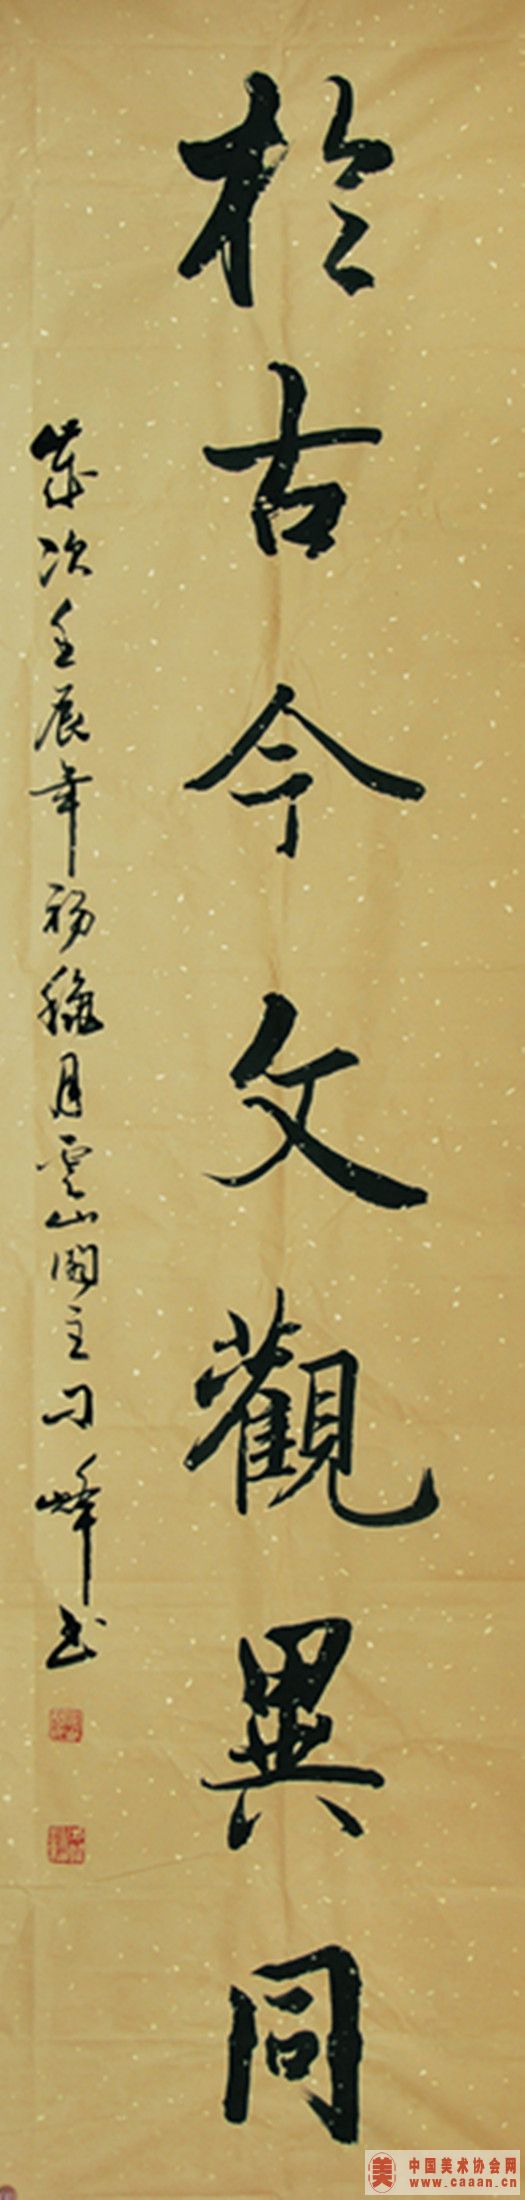 於古今文觀異同
歲次壬辰年初龝月雲山閣主刁峰书
中国美术协会网
www.caaan.cn